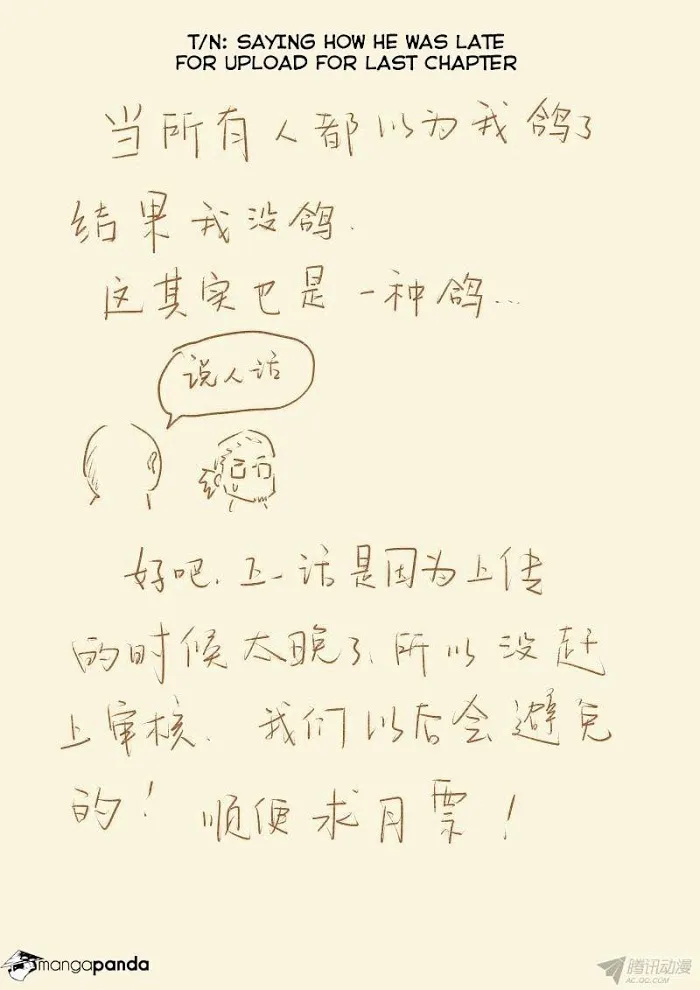 T/N: SAYING HOW HE WAS LATE
FOR UPLOAD FOR LAST CHAPTER
当所有人都以为我鸽了
结果我没鸽.
这其实也是一种鸽...
说人话
好吧.上一话是因为上传
的时候太晚了、所以没赶
上审核. 我们以后会避免
的! 顺便求月票!
mangapanda
腾讯动漫
AC.QQ.COM